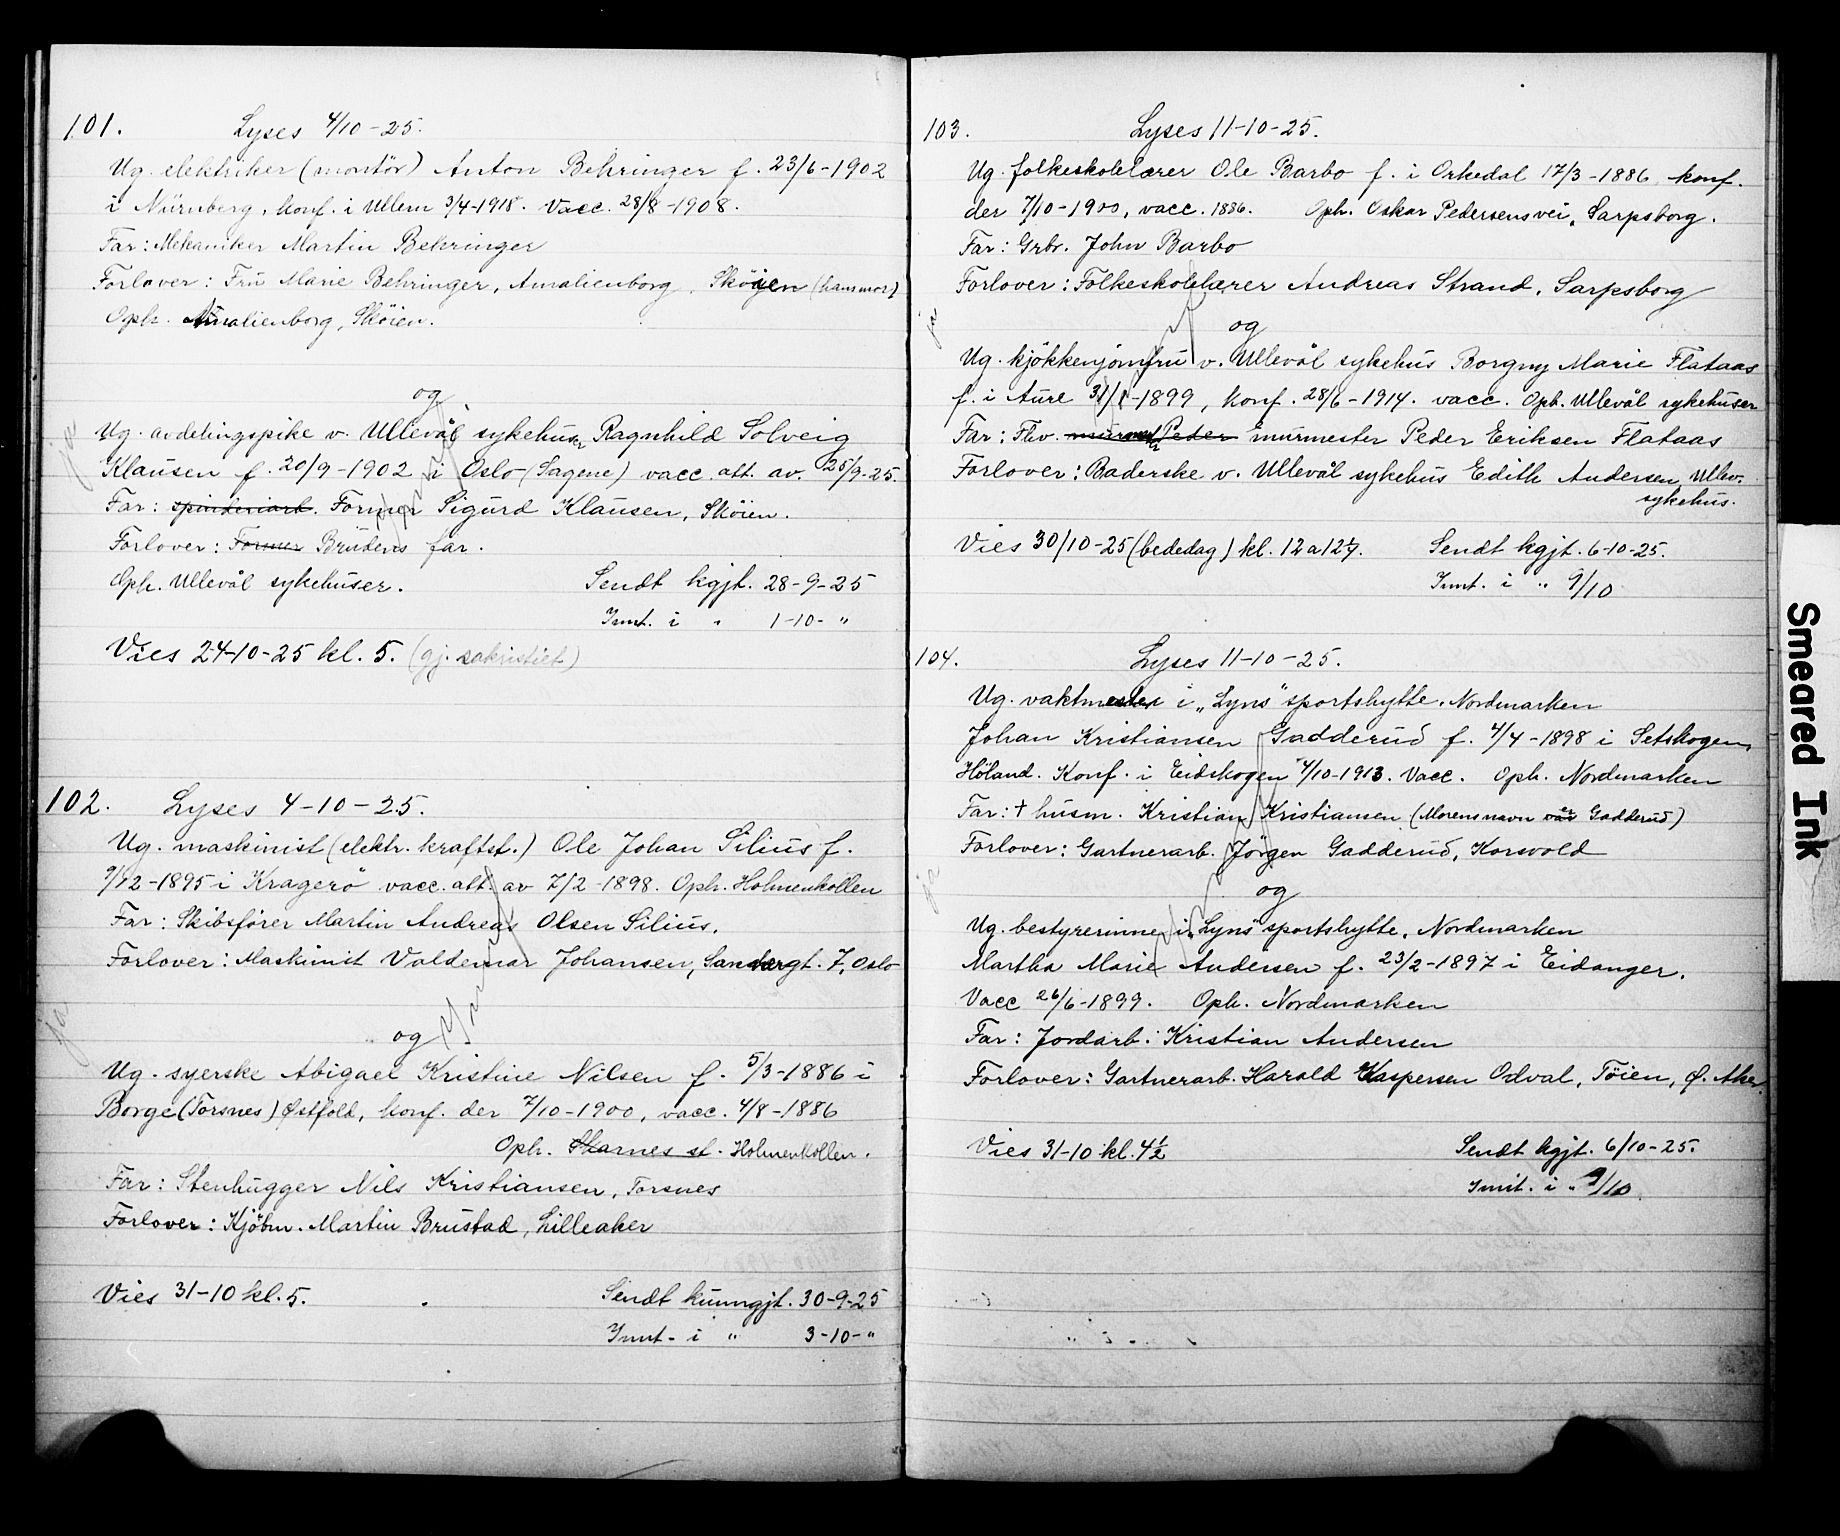 101. Lyses 4/10-25.
Ug. elektriker (montör) Anton Behringer f. 23/6-1902
i Nürnberg, konf. i Ullern 3/4-1918. Vacc. 28/8-1908.
Far: Mekaniker Martin Behringer
Forlover: Fru Marie Behringer, Amalienborg, Sköien (hans mor)
Oph. Amalienborg, Sköien.
og
Ug. avdelingspike v. Ullevål sykehus Ragnhild Solveig
Klausen f. 20/9-1902 i Oslo (Sagene) vacc. att. av. 25/9-25.
Far: spinderiarb. Former Sigurd Klausen, Sköien.
Forlover: Former Brudens far.
Oph. Ullevål sykehuser. Sendt kgjt. 28-9-25
Innt. i " 1-10- "
Vies 24-10-25 kl. 5. (gj. sakristiet)
ja
102. Lyses 4-10-25.
Ug. maskinist (elektr. kraftst.) Ole Johan Silius f.
9/12-1895 i Kragerö vacc. att. av 7/2-1898. Oph. Holmenkollen
Far: Skibsförer Martin Andreas Olsen Silius.
Forlover: Maskinist Valdemar Johansen, 7, Oslo
og
Ug. syerske Abigael Kristine Nilsen f. 5/3-1886 i
Borge (Torsnes) Østfold, konf. der 7/10-1900, vacc. 4/8-1886
Oph. Skarnes st. Holmenkollen.
Far: Stenhugger Nils Kristiansen, Torsnes
Forlover: Kjöbm. Martin Brustad, Lilleaker
Vies 31-10 kl. 5. Sendt kunngjt. 30-9-25
Innt. i " 3-10- "
ja
103. Lyses 11-10-25.
Ug. folkeskolelærer Ole Barbo f. i Orkedal 17/3-1886, konf.
der 7/10-1900, vacc. 1886. Oph. Oskar Pedersensvei, Sarpsborg.
Far: Grbr. John Barbo
Forlover: Folkeskolelærer Andreas Strand, Sarpsborg
og
Ug. kjökkenjomfru v. Ullevål sykehus Borgny Marie Flataas
f. i Aure 31/1-1899, konf. 28/6-1914. vacc. Oph. Ullevål sykehuser
Far: Fhv. Peder murmester Peder Eriksen Flataas
Forlover: Baderske v. Ullevål sykehus Edith Andersen, Ullev.
sykehus.
Vies 30/10-25 (bededag) kl. 12 a 12 Sendt kgjt. 6-10-25.
Innt. i " 9/10
ja
104. Lyses 11-10-25.
Ug. vaktmester i „Lyns" sportshytte, Nordmarken
Johan Kristiansen Gadderud f. 4/4-1898 i Setskogen,
Höland. Konf. i Eidskogen /10-1913. Vacc. Oph. Nordmarken
Far: † husm. Kristian Kristiansen (Morens navn var Gadderud)
Forlover: Gartnerarb. Jörgen Gadderud, Korsvold
og
Ug. bestyrerinne i „Lyns" sportshytte, Nordmarken
Martha Marie Andersen f. 23/2-1897 i Eidanger.
Vacc 26/6-1899. Oph. Nordmarken
Far: Jordarb. Kristian Andersen
Forlover: Gartnerarb. Harald Kaspersen Odval, Töien, Ø. Aker
Vies 31-10 kl. 4½ Sendt kgjt. 6/10-25.
Innt. i " 9/10
ja
Smeared Ink